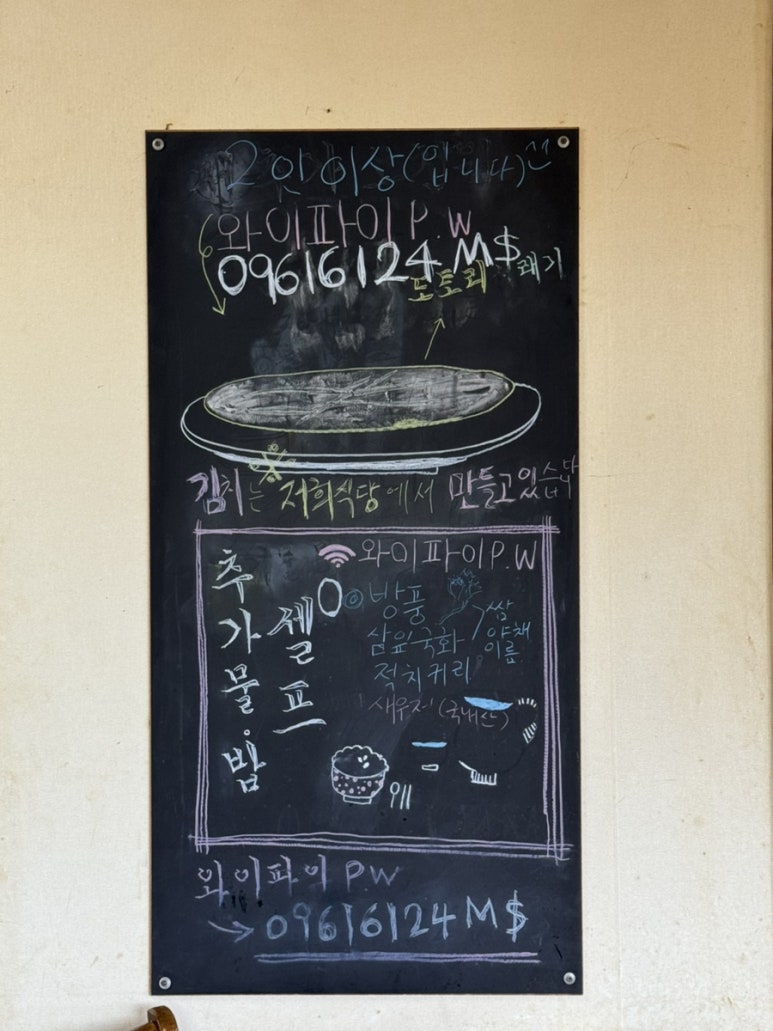 2인이상(입니다)
와이파이P.W
09616124M$
도토리
김치는 저희식당에서 만들고있습니다
와이파이P.W
추가물·밥
셀프
방풍
삼잎국화
적치커리
쌈
야채
이름
새우젓(국내산)
와이파이 P.W
→09616124M$